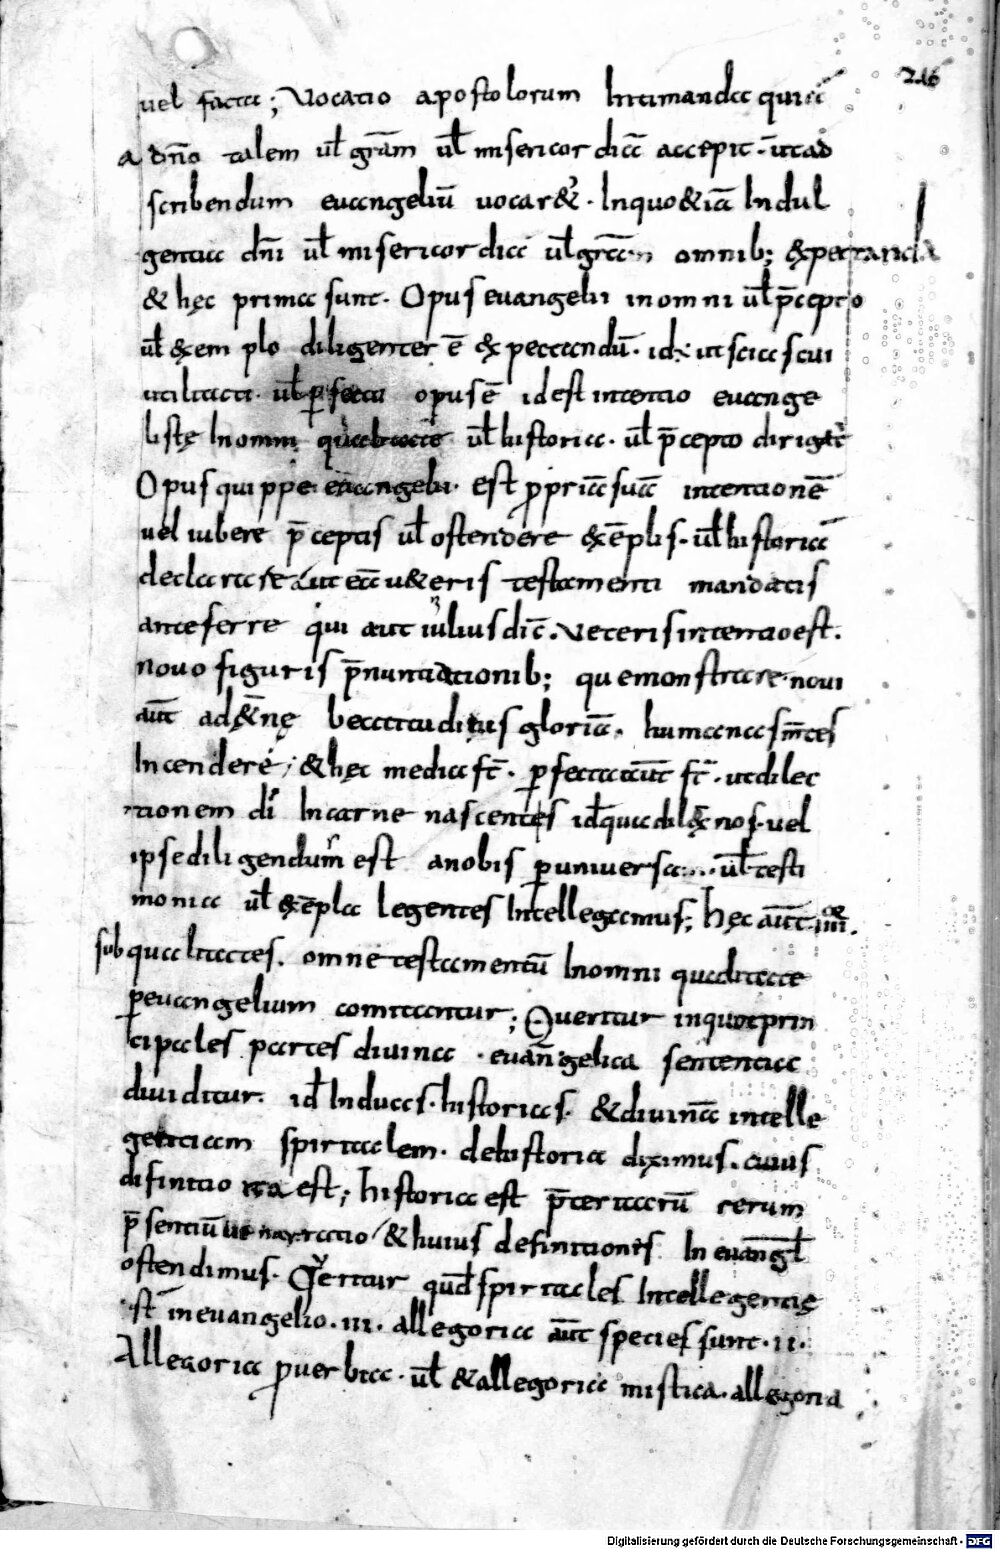 216
uel facta; Vocatio apostolorum Intimanda quia
a dño talem ul̄ grãm ul̄ misericordiã accepit · ut ad
scribendum euangeliũ uocar& · Inquo &iã Indul
gentia dñi ul̄ misericordia ul̄ grãm omnib; expectanda
& hęc prima sunt · Opus euangelii in omni ul̄ p̄cepto
ul̄ exemplo diligenter ē expectandũ · id ÷ ut scias cui
utilitati · ul̄ opus ē id est intentio euange
listę In omni ul̄ historia · ul̄ p̄cepto dirigat̄
Opus quippe euangelii · est ppriã suã intentionē
uel iubere p̄ceptis ul̄ ostendere exēplis · ul̄ historiã
declarare ueteris testamenti mandatis
anteferre qui aut iulius dic̄ · Veteris intentio est ·
nouo figuris p̄nuntiationib; quē monstrare · noui
aut̄ ad &̄nę beatitudinis gloriã · humanas m̄tes
Incendere; & hęc media st̄ · pfecta aut̄ st̄ · ut dilec
tionem dī In carne nascentis id quia dilex nos · uel
ipse diligendum est a nobis p uniuersa ul̄ testi
monia ul̄ exēpla legentes Intellegamus; hęc aut̄ · iiii ·
sub qualitates · omne testamentũ In omni qualitate
peuangelium comitantur; Queritur in quot prin
cipales partes diuina · euangelica sententia
diuiditur · id̄ In duas · historias · & diuinã intelle
gentiam spiritalem · de historia diximus · cuius
difinitio ita est; historia est p̄teritarũ rerum
p̄sentiũ ue narratio / & huius definitionis In euangl̄
ostendimus · Qeritur quod spiritales Intellegentię
st̄ in euangelio · iii · allegoria aut̄ species sunt · ii ·
Allegoria puerbia · ul̄ & allegoria mistica · allegoria
Digitalisierung gefördert durch die Deutsche Forschungsgemeinschaft - DFG